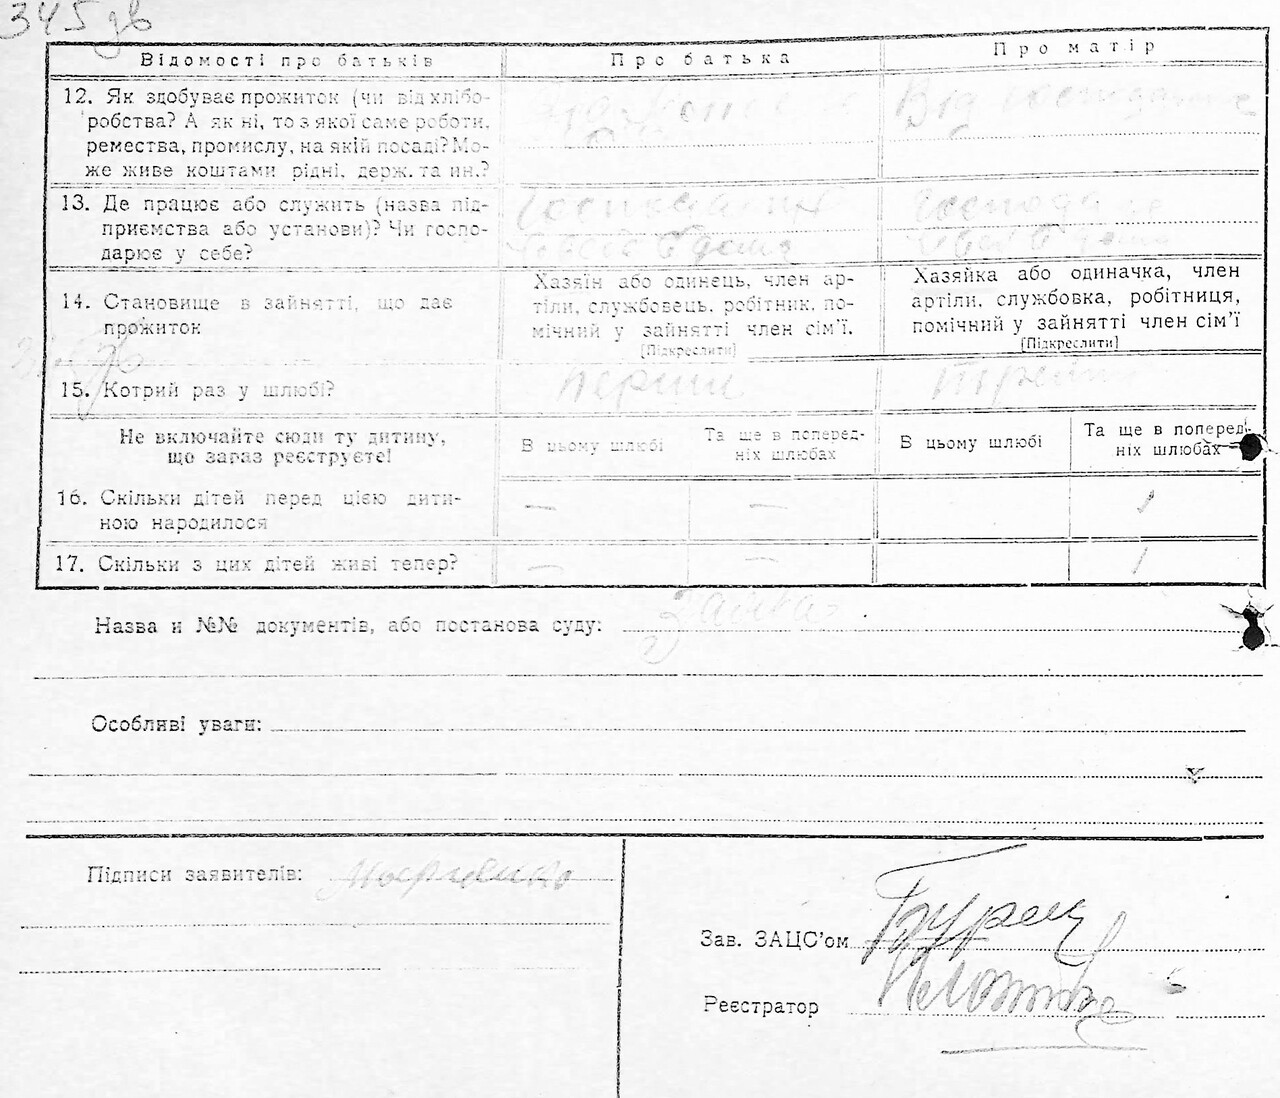 345 зв
Відомості про батьків
Про батька
Про матір
12. Як здобуває прожиток (чи від хлібо-
робства? А як ні, то з якої саме роботи,
ремества, промислу, на якій посаді? Мо-
же живе коштами рідні, держ. та ин.?
Від
13. Де працює або служить (назва під-
приємства або установи)? Чи госпо-
дарює у себе?
14. Становище в зайнятті, що дає
прожиток
Хазяїн або одинець, член ар-
тіли, службовець, робітник, по-
мічний у зайнятті член сім'ї.
[Підкреслити]
Хазяйка або одиначка, член
артіли, службовка, робітниця,
помічний у зайнятті член сім'ї
[Підкреслити]
15. Котрий раз у шлюбі?
перший
третій
Не включайте сюди ту дитину,
що зараз реєструєте!
В цьому шлюбі
Та ще в поперед-
ніх шлюбах
В цьому шлюбі
Та ще в поперед-
ніх шлюбах
16. Скільки дітей перед цією дити-
ною народилося
— — 1
17. Скільки з цих дітей живі тепер?
— — 1
Назва и №№ документів, або постанова суду:
Особливі уваги:
Підписи заявителів:
Зав. ЗАЦС'ом
Реєстратор